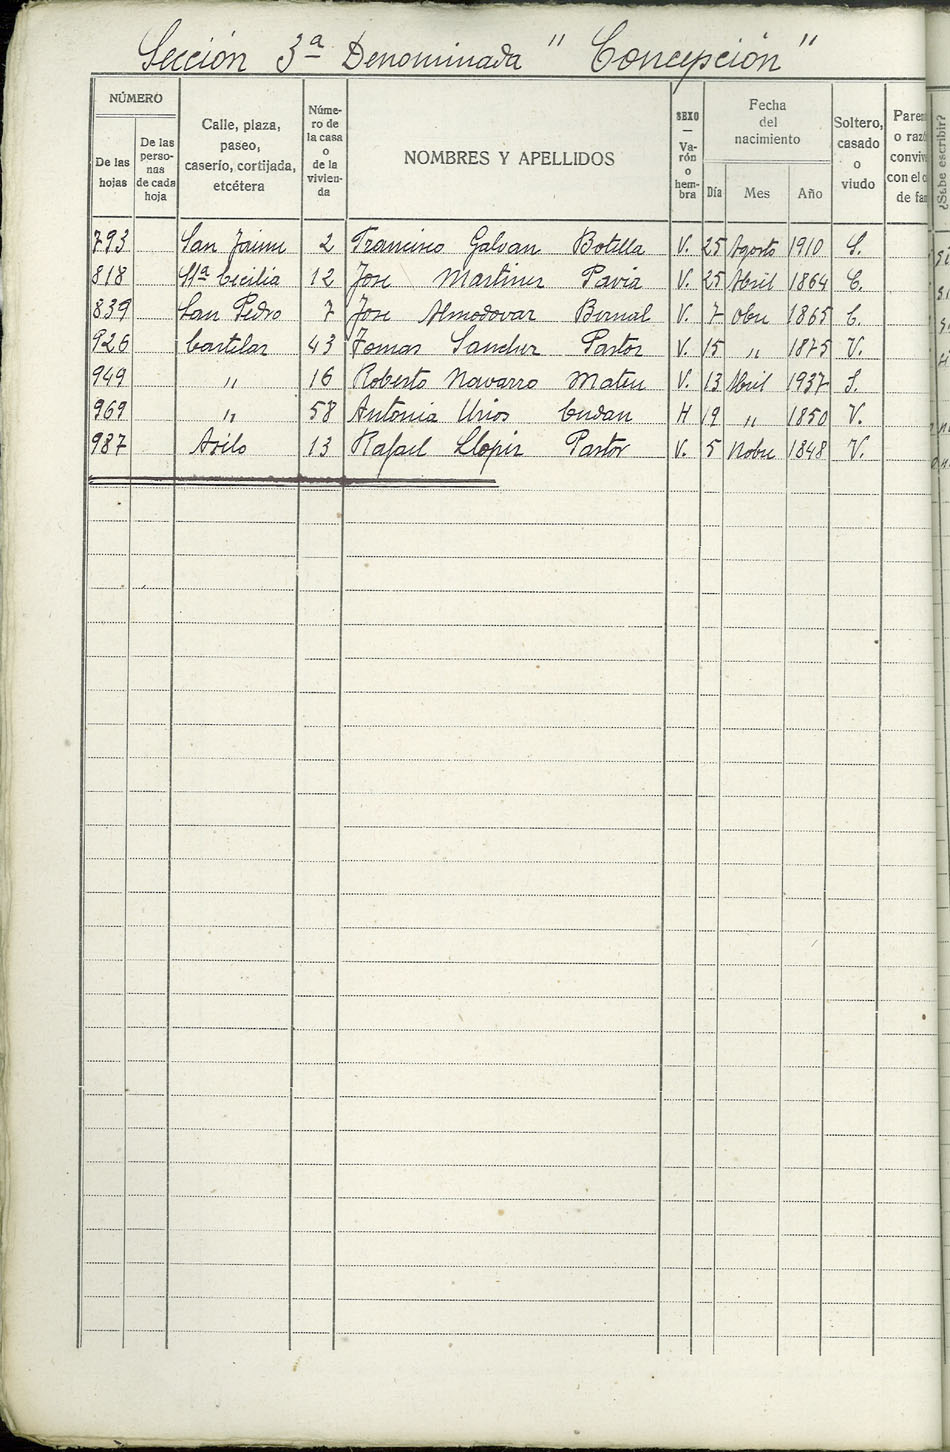 Sección 3ª Denominada " Concepción "
NÚMERO
De las hojas
De las perso-nas de cada hoja
Calle, plaza, paseo, caserío, cortijada, etcétera
Núme-ro de la casa o de la vivien-da
NOMBRES Y APELLIDOS
SEXO — Va-rón o hem-bra
Fecha del nacimiento
Día
Mes
Año
Soltero, casado o viudo
Paren
o razó
conviv
con el c
de fam
¿Sabe escribir?
793 San Jaime 2 Francisco Galvan Botella V. 25 Agosto 1910 S.
818 Stª Cecilia 12 Jose Martinez Pavia V. 25 Abril 1864 C.
839 San Pedro 7 Jose Almodovar Bernal V. 7 Obre 1865 C.
926 Castelar 43 Tomas Sanchez Pastor V. 15 " 1875 V.
949 " 16 Roberto Navarro Mateu V. 13 Abril 1937 S.
969 " 58 Antonia Urios Cerdan H 19 " 1850 V.
987 Asilo 13 Rafael Llopiz Pastor V. 5 Nobre 1848 V.